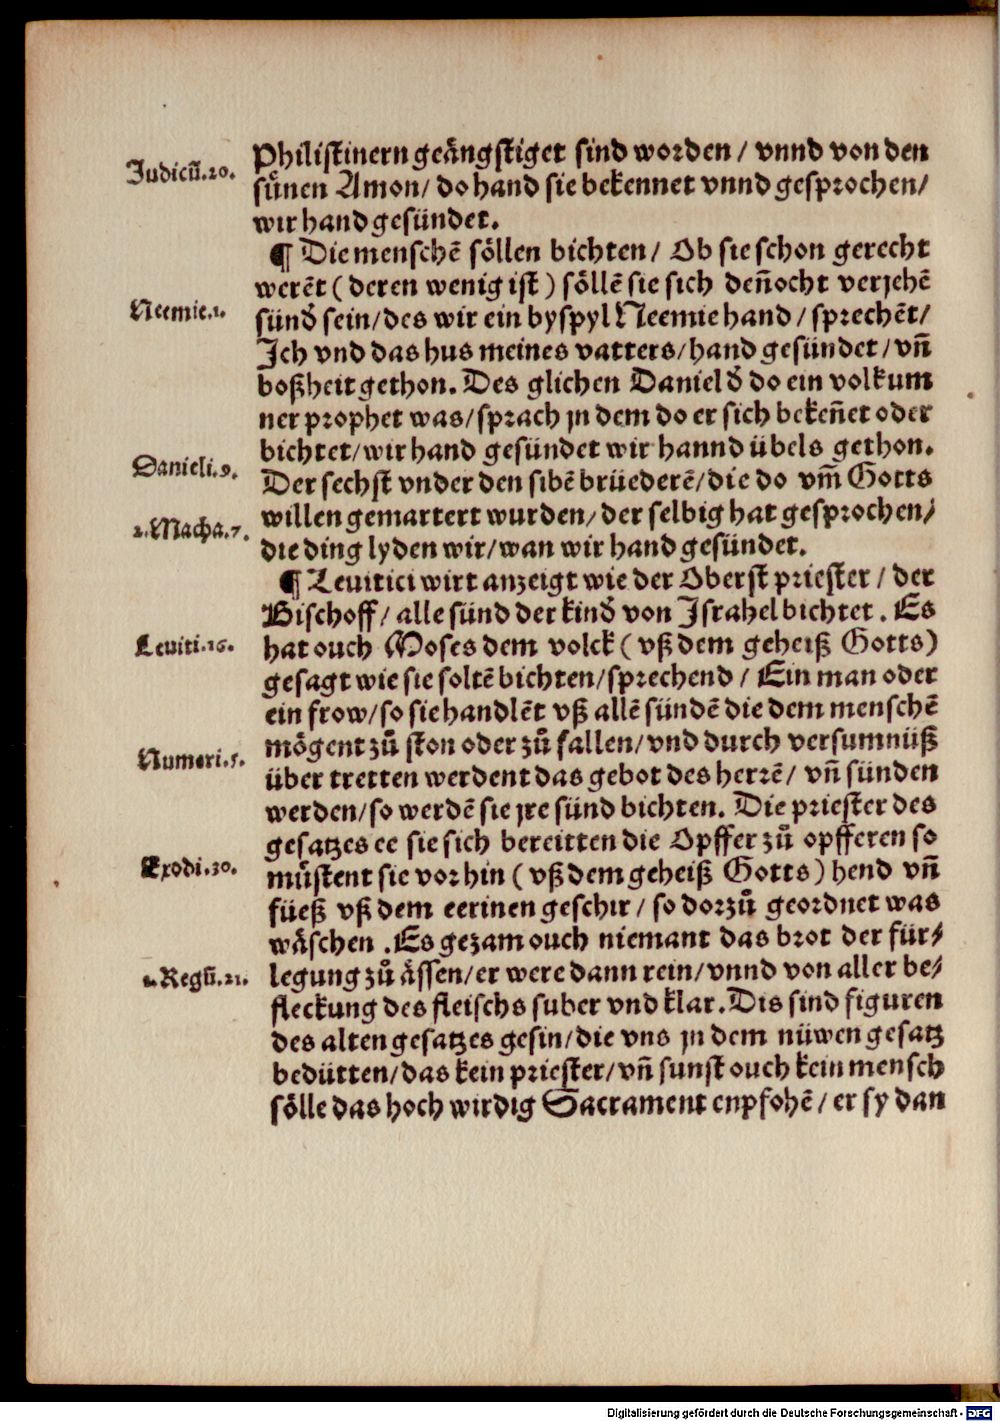 Judicū.10.
Philistinern geängstiget sind worden / vnnd von den
sünen Amon/ do hand sie bekennet vnnd gesprochen/
wir hand gesündet.
¶ Die menschē söllen bichten / Ob sie schon gerecht
werēt ( deren wenig ist ) söllē sie sich deñocht verjehē
Neemie.1.
sünd sein/des wir ein byspyl Neemie hand / sprechēt/
Jch vnd das hus meines vatters/hand gesündet / vñ
boßheit gethon. Des glichen Daniel d do ein volkum
ner prophet was/sprach jn dem do er sich bekeñet oder
bichtet/wir hand gesündet wir hannd übels gethon.
Danieli.9.
Der sechst vnder den sibē brüederē/die do vm̃ Gotts
2.Macha.7.
willen gemartert wurden/ der selbig hat gesprochen/
die ding lyden wir/wan wir hand gesündet.
¶ Leuitici wirt anzeigt wie der Oberst priester / der
Bischoff/ alle sünd der kind von Jsrahel bichtet . Es
Leuiti.16.
hat ouch Moses dem volck ( vß dem geheiß Gotts)
gesagt wie sie soltē bichten/sprechend / Ein man oder
ein frow/so sie handlēt vß allē sündē die dem menschē
Numeri.5.
mögent zů ston oder zů fallen/vnd durch versumnüß
über tretten werdent das gebot des herrē/ vñ sünden
werden/so werdē sie jre sünd bichten. Die priester des
gesatzes ee sie sich bereitten die Opffer zů opfferen so
Exodi.30.
můstent sie vorhin ( vß dem geheiß Gotts) hend vñ
füeß vß dem eerinen geschir / so dorzů geordnet was
wäschen .Es gezam ouch niemant das brot der für/
1.Regū.21.
legung zů ässen/er were dann rein/vnnd von aller be/
fleckung des fleischs suber vnd klar.Dis sind figuren
des alten gesatzes gesin/die vns jn dem nüwen gesatz
bedütten/das kein priester/vñ sunst ouch kein mensch
sölle das hoch wirdig Sacrament enpfohē/ er sy dan
Digitalisierung gefördert durch die Deutsche Forschungsgemeinschaft - DFG